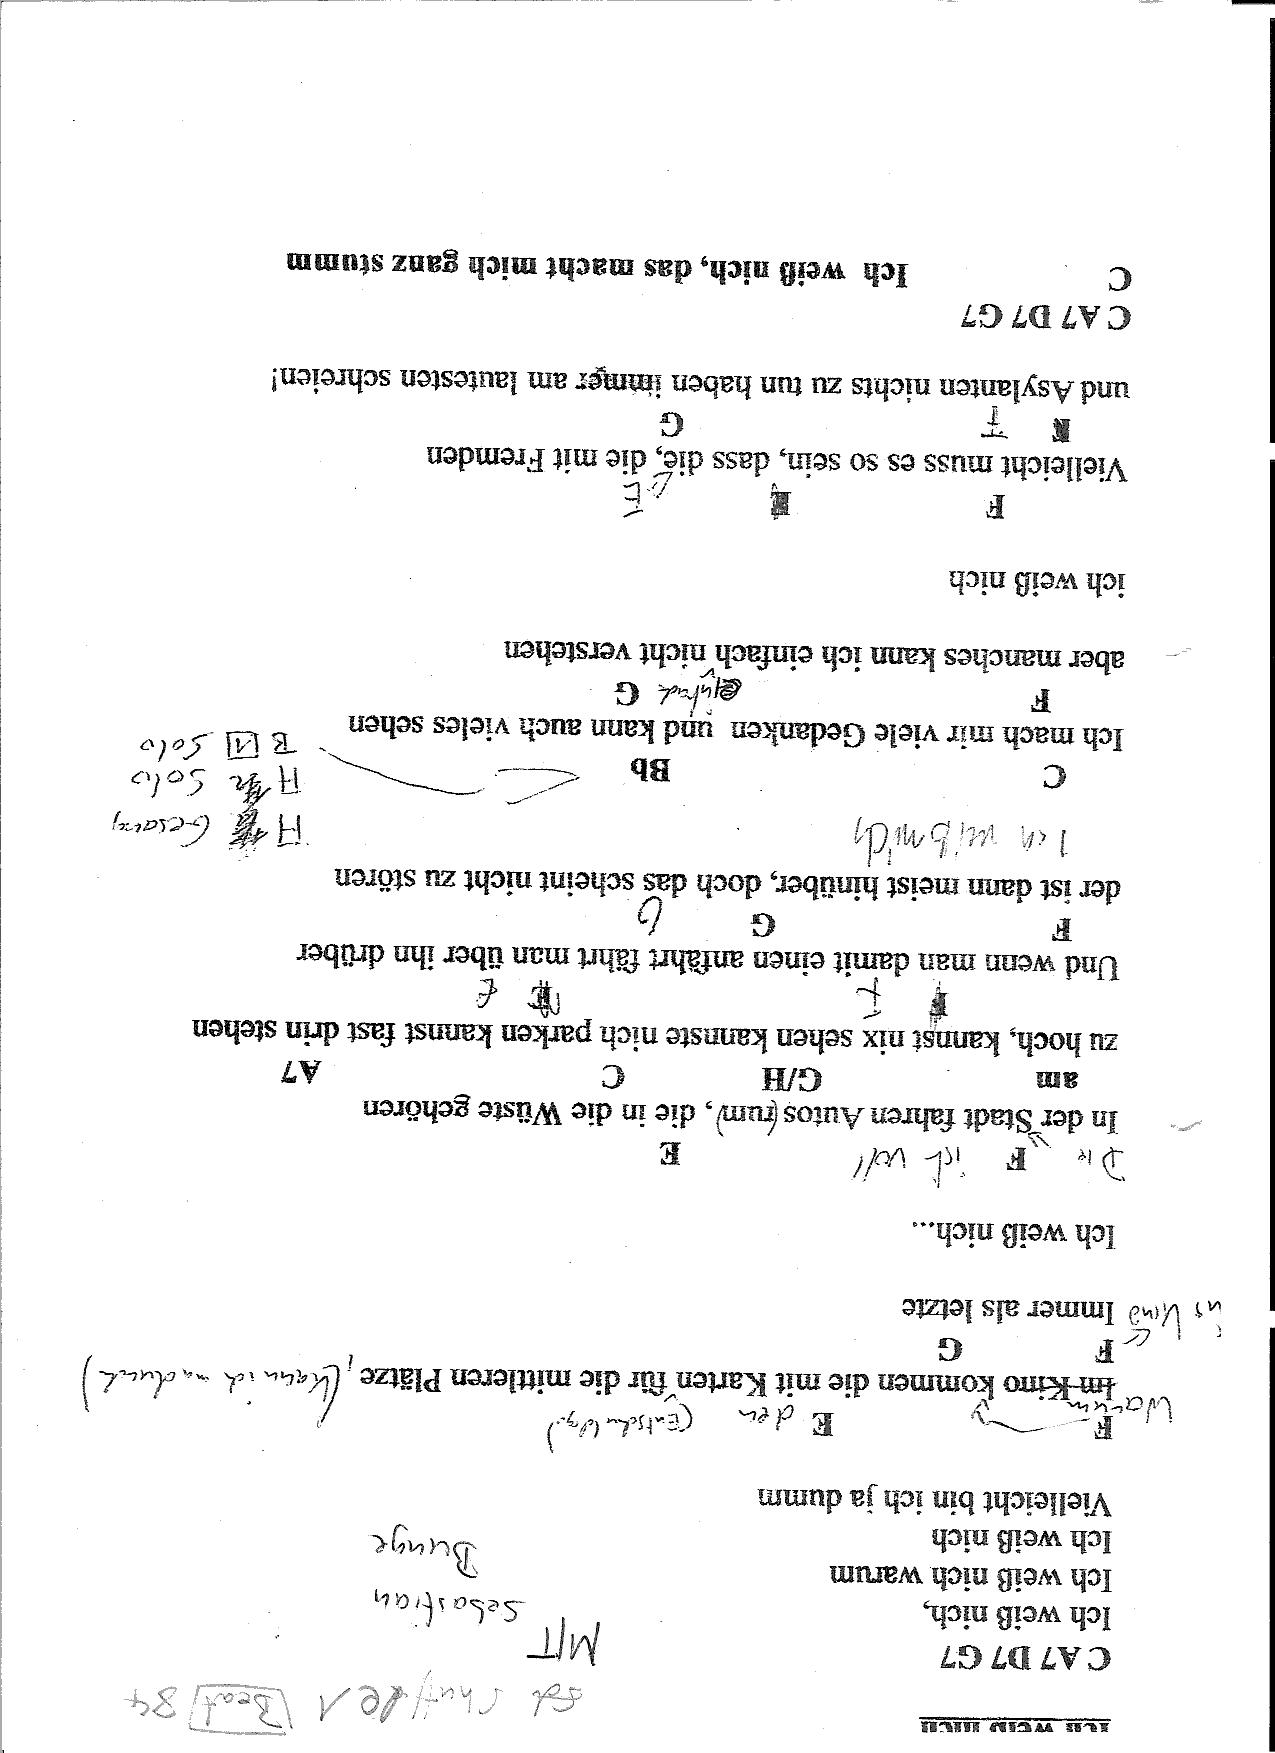 Ich weiß nich
Shuffle 1 Beat 84
C A7 D7 G7
MIT
Ich weiß nich,
Sebastian
Ich weiß nich warum
Bunge
Ich weiß nich
Vielleicht bin ich ja dumm
F E den
Warum
Im Kino kommen die mit Karten für die mittleren Plätze, (kann ich
F G
ins Kino
Immer als letzte
Ich weiß nich...
Die F ist voll E
In der Stadt fahren Autos (rum), die in die Wüste gehören
am G/H C A7
zu hoch, kannst nix sehen kannste nich parken kannst fast drin stehen
F E
Und wenn man damit einen anfährt fährt man über ihn drüber
F G
der ist dann meist hinüber, doch das scheint nicht zu stören
Ich weiß nich
A Gesang
A Solo
B 1 Solo
C Bb
Ich mach mir viele Gedanken und kann auch vieles sehen
F G
aber manches kann ich einfach nicht verstehen
ich weiß nich
F E
Vielleicht muss es so sein, dass die, die mit Fremden
F G
und Asylanten nichts zu tun haben immer am lautesten schreien!
C A7 D7 G7
C Ich weiß nich, das macht mich ganz stumm